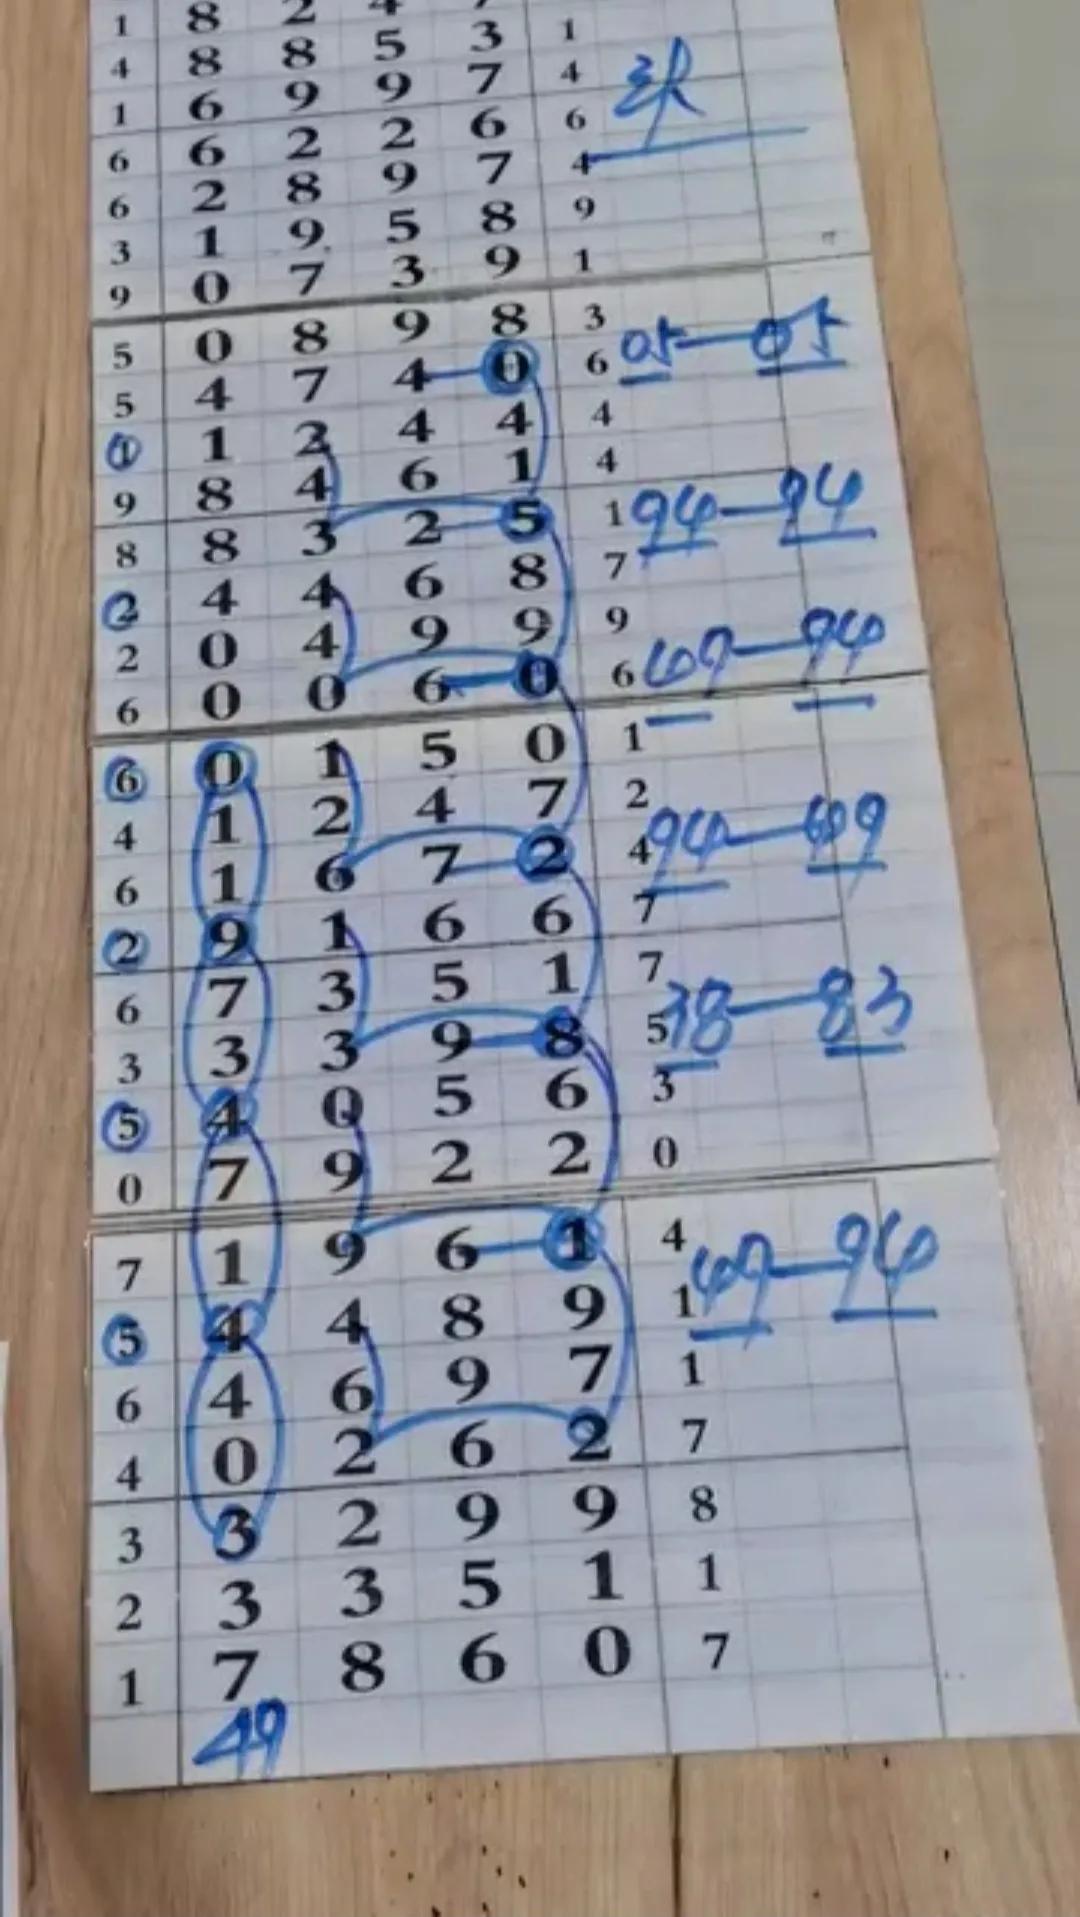 1 8 2 4 7
4 8 8 5 3 1
1 6 9 9 7 4
6 6 2 2 6 6
6 2 8 9 7 4
3 1 9 5 8 9
9 0 7 3 9 1
5 0 8 9 8 3
5 4 7 4 0 6 05—05
1 1 2 4 4 4
9 8 4 6 1 4
8 8 3 2 5 1 94—94
2 4 4 6 8 7
2 0 4 9 9 9
6 0 0 6 0 6 49—94
6 0 1 5 0 1
4 1 2 4 7 2
6 1 6 7 2 4 94—49
2 9 1 6 6 7
6 7 3 5 1 7
3 3 3 9 8 5 38—83
5 4 0 5 6 3
0 7 9 2 2 0
7 1 9 6 1 4
5 4 4 8 9 1 49—94
6 4 6 9 7 1
4 0 2 6 2 7
3 3 2 9 9 8
2 3 3 5 1 1
1 7 8 6 0 7
49